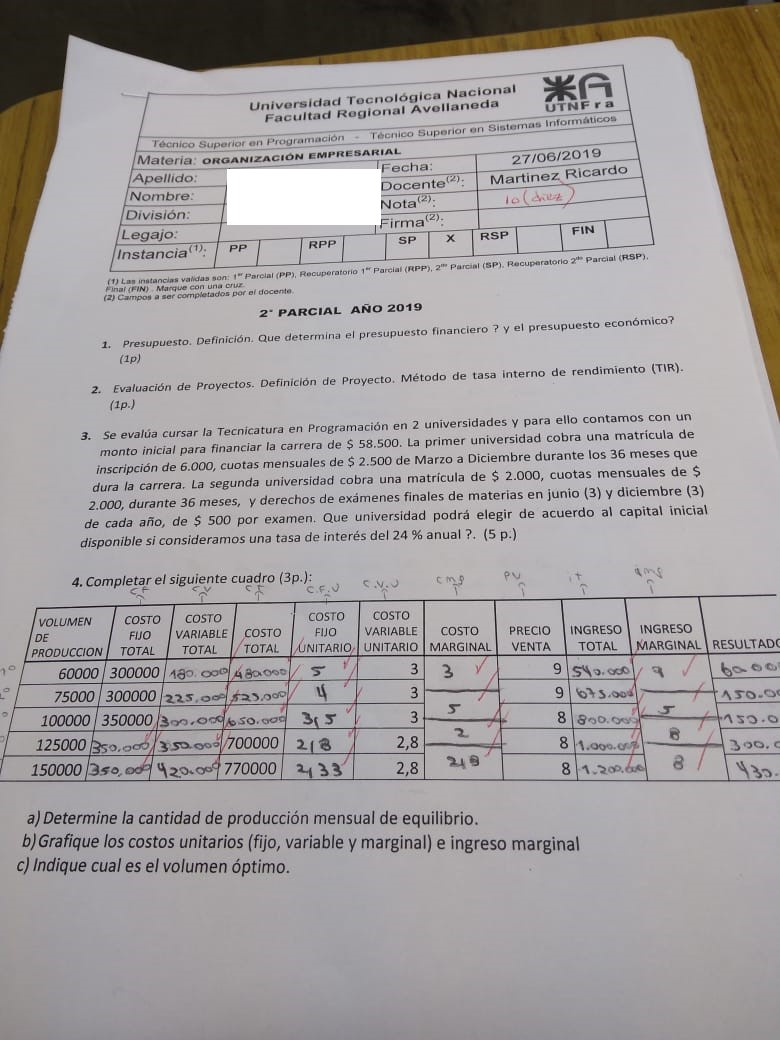 Universidad Tecnológica Nacional
Facultad Regional Avellaneda
UTNFra
Técnico Superior en Programación - Técnico Superior en Sistemas Informáticos
Materia: ORGANIZACIÓN EMPRESARIAL
Apellido: Fecha: 27/06/2019
Nombre: Docente(2): Martinez Ricardo
División: Nota(2): 10 (diez)
Legajo: Firma(2):
Instancia(1): PP RPP SP X RSP FIN
(1) Las instancias validas son: 1er Parcial (PP), Recuperatorio 1er Parcial (RPP), 2do Parcial (SP), Recuperatorio 2do Parcial (RSP),
Final (FIN). Marque con una cruz.
(2) Campos a ser completados por el docente.
2° PARCIAL AÑO 2019
1. Presupuesto. Definición. Que determina el presupuesto financiero ? y el presupuesto económico?
(1p)
2. Evaluación de Proyectos. Definición de Proyecto. Método de tasa interno de rendimiento (TIR).
(1p.)
3. Se evalúa cursar la Tecnicatura en Programación en 2 universidades y para ello contamos con un
monto inicial para financiar la carrera de $ 58.500. La primer universidad cobra una matrícula de
inscripción de 6.000, cuotas mensuales de $ 2.500 de Marzo a Diciembre durante los 36 meses que
dura la carrera. La segunda universidad cobra una matrícula de $ 2.000, cuotas mensuales de $
2.000, durante 36 meses, y derechos de exámenes finales de materias en junio (3) y diciembre (3)
de cada año, de $ 500 por examen. Que universidad podrá elegir de acuerdo al capital inicial
disponible si consideramos una tasa de interés del 24 % anual ?. (5 p.)
4. Completar el siguiente cuadro (3p.):
CF CV CT C.F.U C.V.U cmg PV it
VOLUMEN DE PRODUCCION COSTO FIJO TOTAL COSTO VARIABLE TOTAL COSTO TOTAL COSTO FIJO UNITARIO COSTO VARIABLE UNITARIO COSTO MARGINAL PRECIO VENTA INGRESO TOTAL INGRESO MARGINAL RESULTADO
60000 300000 180.000 480.000 5 3 3 9 540.000 9 60.00
75000 300000 225.000 525.000 4 3 9 675.000 150.0
100000 350000 300.000 650.000 3,5 3 5 8 800.000 5 150.0
125000 350.000 350.000 700000 2,8 2,8 2 8 1.000.000 8 300.0
150000 350.000 420.000 770000 2,33 2,8 2,8 8 1.200.000 8 430.
a) Determine la cantidad de producción mensual de equilibrio.
b) Grafique los costos unitarios (fijo, variable y marginal) e ingreso marginal
c) Indique cual es el volumen óptimo.